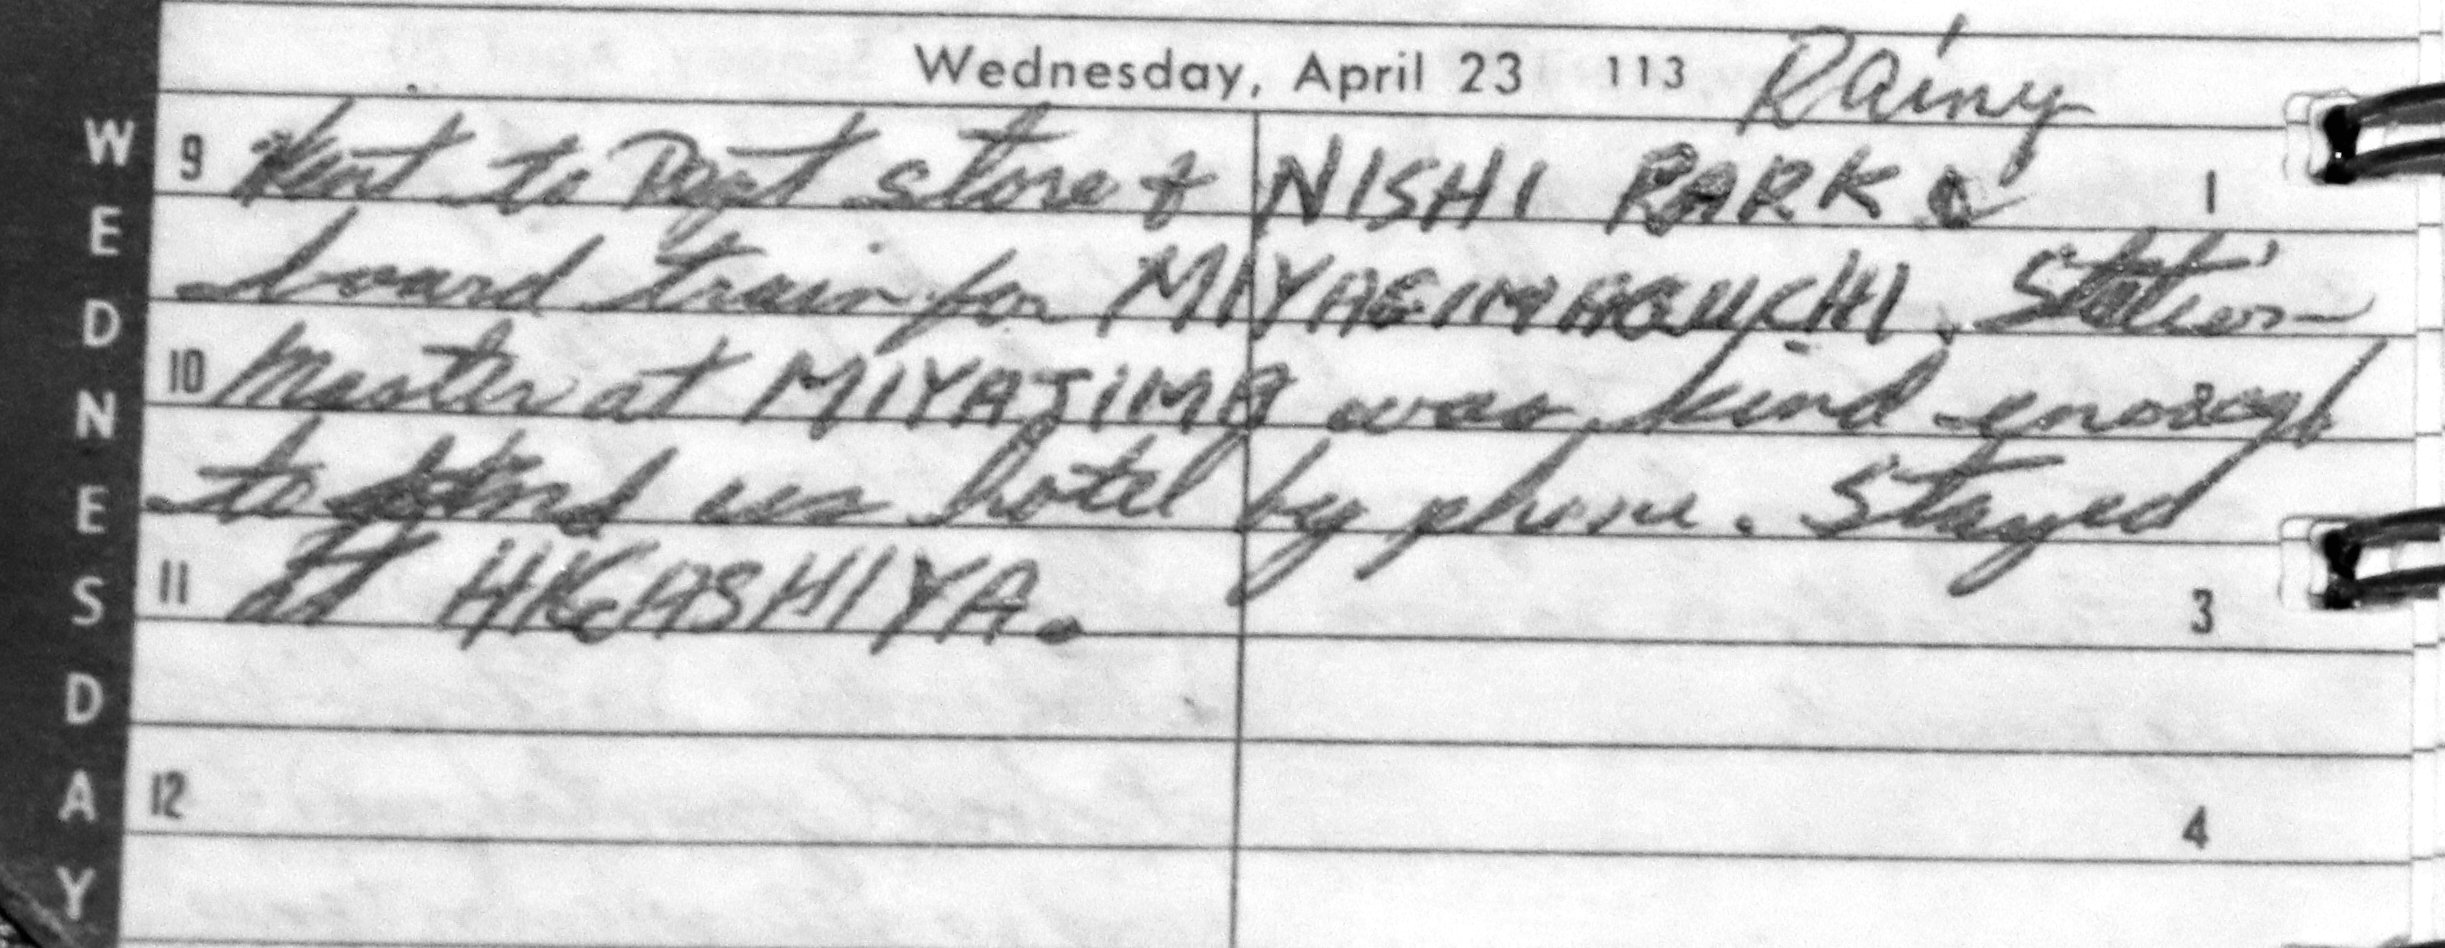 Wednesday, April 23 113 Rainy
9 Went to Dept store & NISHI PARK & 1
board train for MIYAGIMAGUCHI. Station
10 Master at MIYAJIMA was kind enough
to us hotel by phone. Stayed
11 at HIGASHIYA. 3
12 4
WEDNESDAY